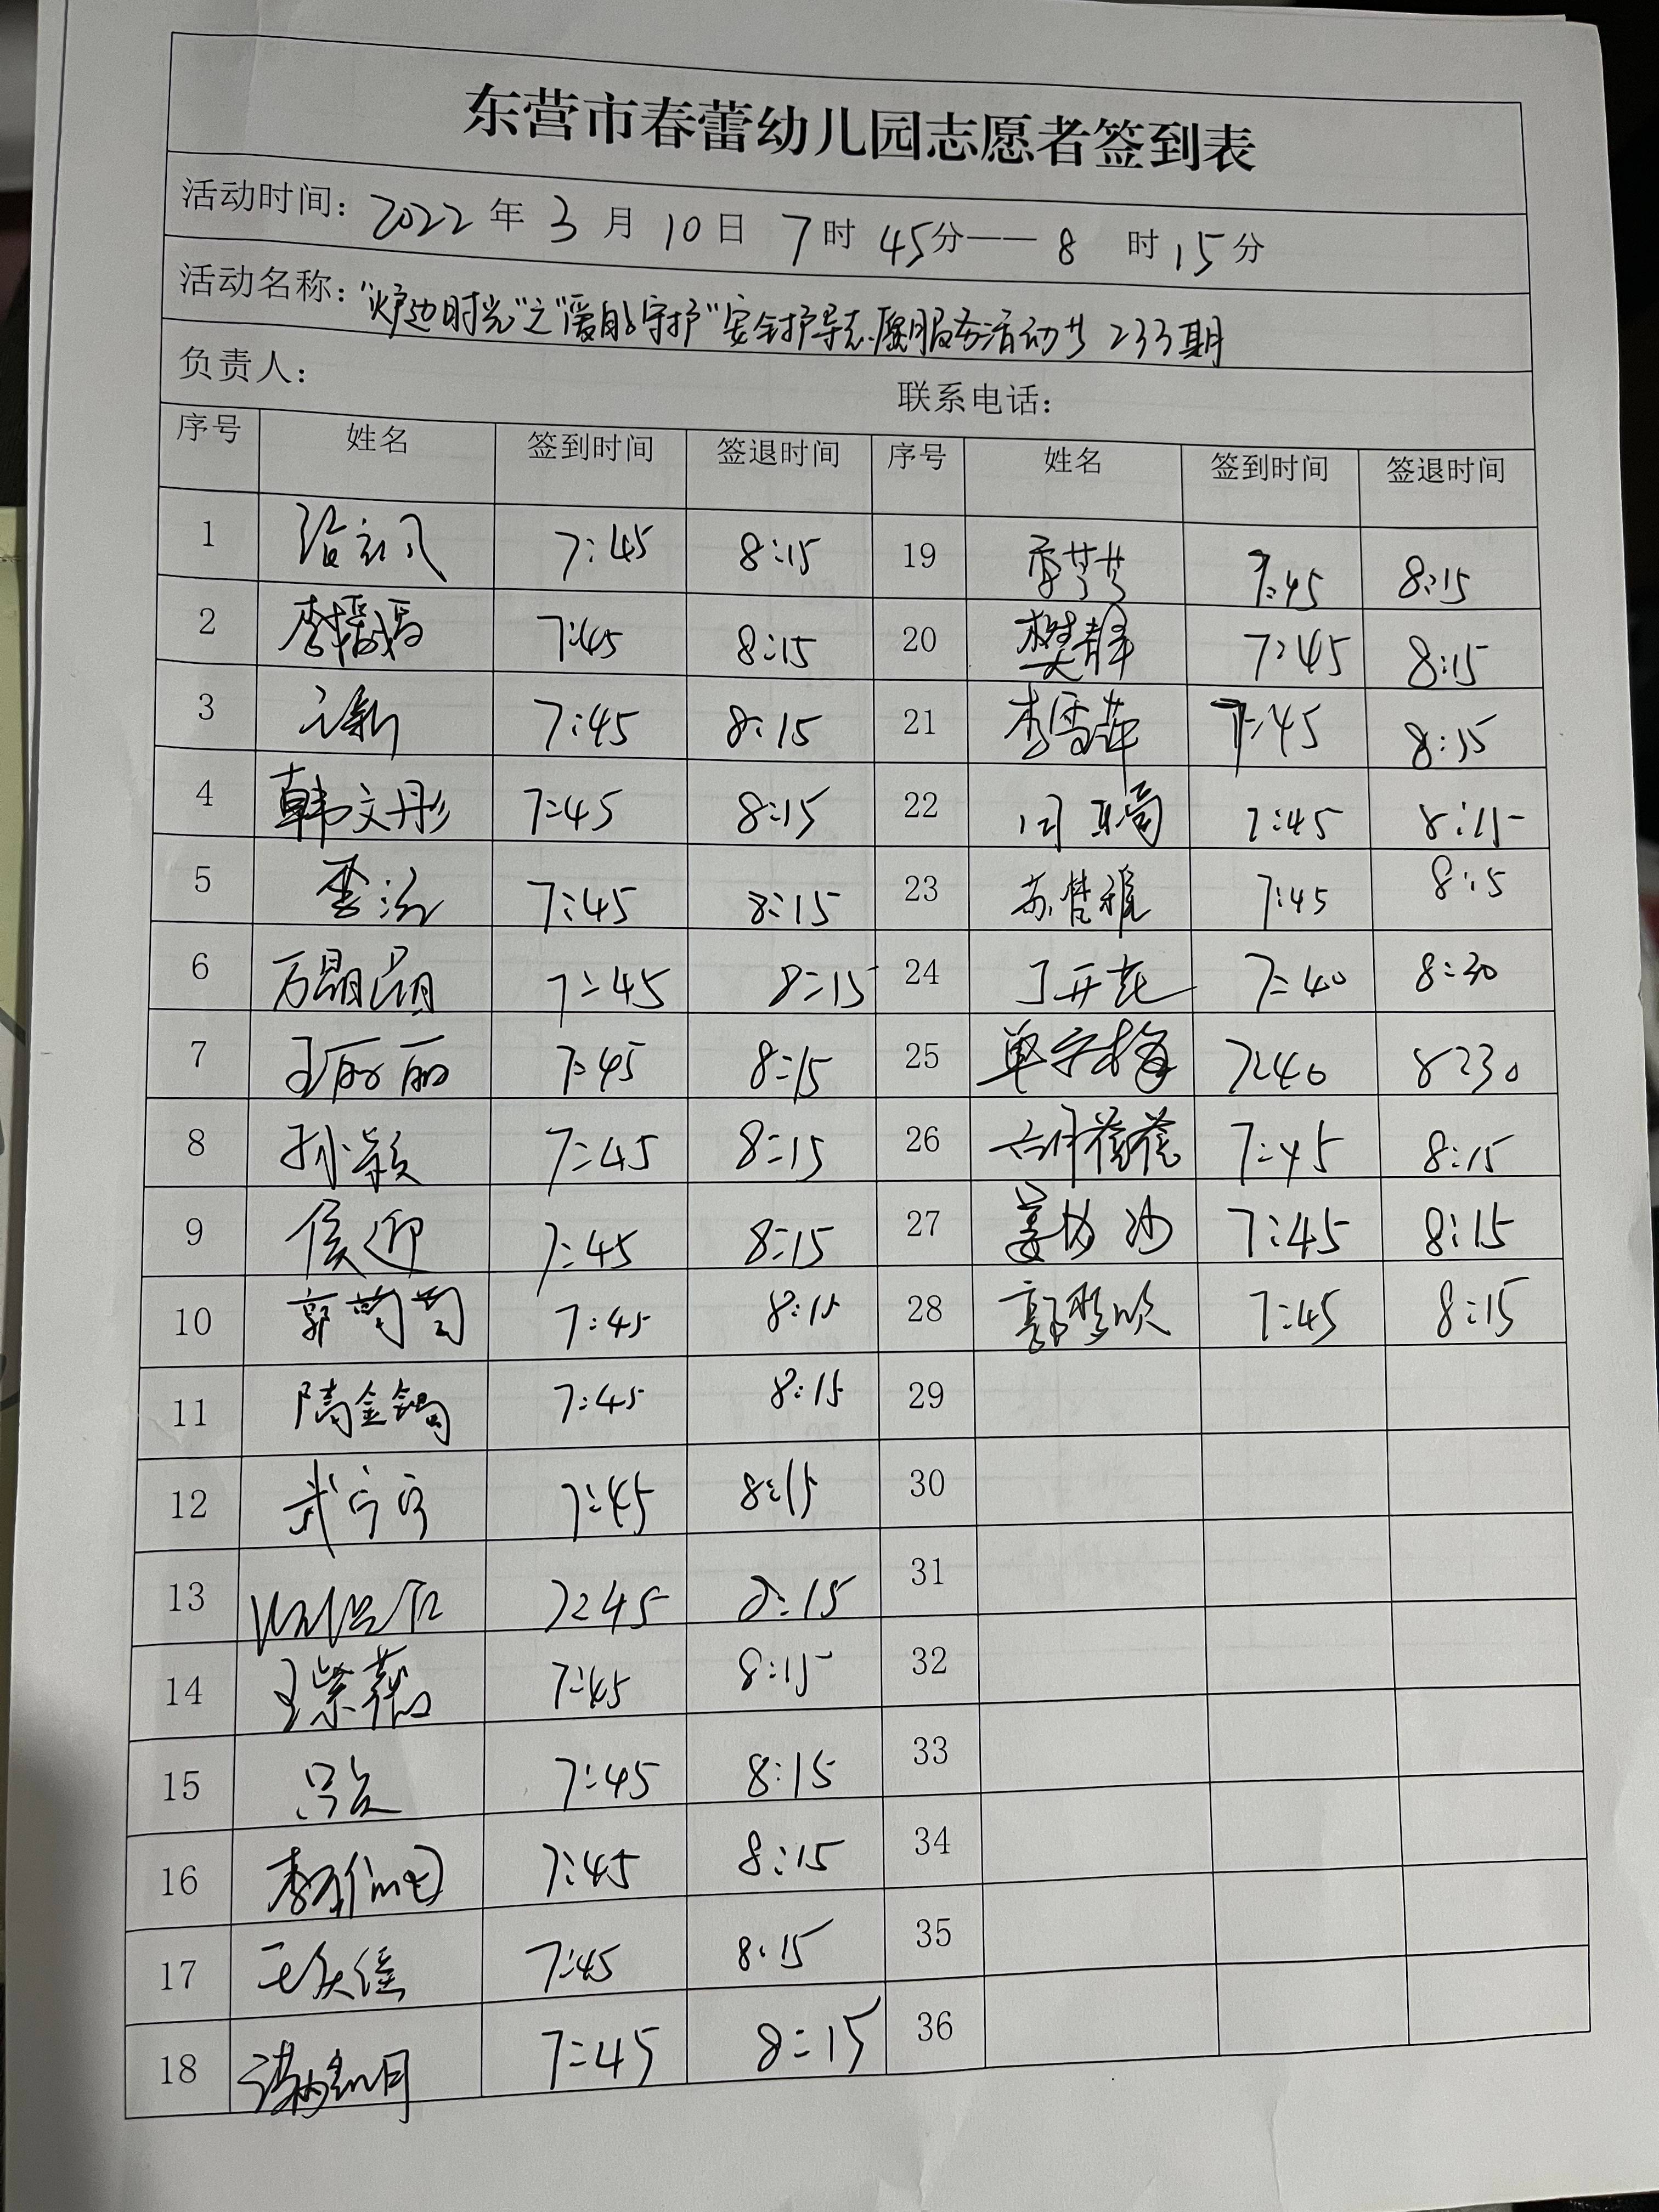 东营市春蕾幼儿园志愿者签到表
活动时间: 2022 年 3 月 10 日 7 时 45 分—— 8 时 15 分
活动名称: "炉边时光"之"爱的守护"安全护导志愿服务活动 233期
负责人: 联系电话:
序号 姓名 签到时间 签退时间 序号 姓名 签到时间 签退时间
1 7:45 8:15 19 7:45 8:15
2 李 7:45 8:15 20 樊静 7:45 8:15
3 7:45 8:15 21 李雪萍 7:45 8:15
4 韩文彤 7:45 8:15 22 7:45 8:15
5 7:45 8:15 23 苏 雅 7:45 8:15
6 万晶晶 7:45 8:15 24 丁开花 7:40 8:30
7 王丽丽 7:45 8:15 25 单 梅 7:40 8:30
8 孙颖 7:45 8:15 26 7:45 8:15
9 侯迎 7:45 8:15 27 姜 7:45 8:15
10 郭萄萄 7:45 8:15 28 郭 欣 7:45 8:15
11 隋金锡 7:45 8:15 29
12 武宁宁 7:45 8:15 30
13 7:45 8:15 31
14 王紫 7:45 8:15 32
15 吕 7:45 8:15 33
16 李 7:45 8:15 34
17 7:45 8:15 35
18 7:45 8:15 36